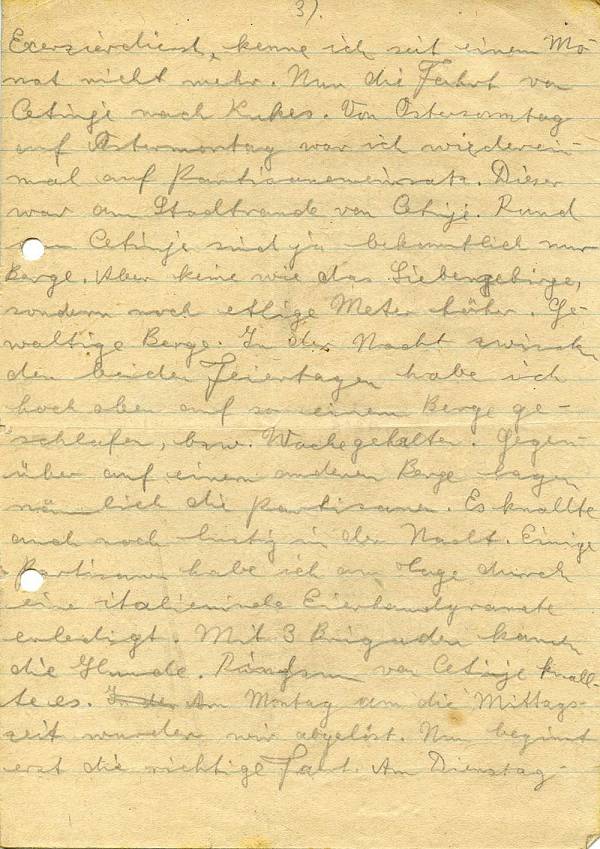 3).
Exerzierdienst, kenne ich seit einem Mo-
nat nicht mehr. Nun die Fahrt von
Cetinje nach Kukes. Von Ostersonntag
auf Ostermontag war ich wiederein-
mal auf Partisaneneinsatz. Dieser
war am Stadtrande von Cetinje. Rund
um Cetinje sind ja bekanntlich nur
Berge. Aber keine wie das Siebengebirge,
sondern noch etlige Meter höher. Ge-
waltige Berge. In der Nacht zwischen
den beiden Feiertagen habe ich
hoch oben auf so einem Berge ge-
schlafen, bzw. Wache gehalten. Gegen-
über auf einem anderen Berge lagen
nämlich die Partisanen. Es knallte
auch noch lustig in der Nacht. Einige
Partisanen habe ich am Tage durch
eine italienische Eierhandgranate
erledigt. Mit 3 Brigaden kamen
die Hunde. Ringsum von Cetinje knall-
te es. In der Am Montag um die Mittags-
zeit wurden wir abgelöst. Nun beginnt
erst die richtige Fart. Am Dienstag-